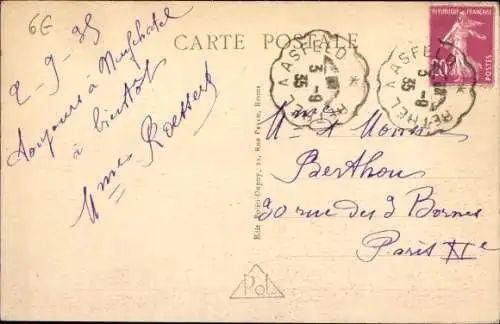 6E
2-9-35
toujours à Neufchatel
à bientôt
Mme Roessert
CARTE POSTALE
RETHEL A ASFELD *
3 -9
35
RETHEL A ASFELD *
3 -9
35
REPUBLIQUE FRANÇAISE
20c
POSTES
Mme et Monsieur
Berthou
30 rue des 3 Bornes
Paris XIe
Edit. Dupuy, 22, Rue Paven, Reims
Pol